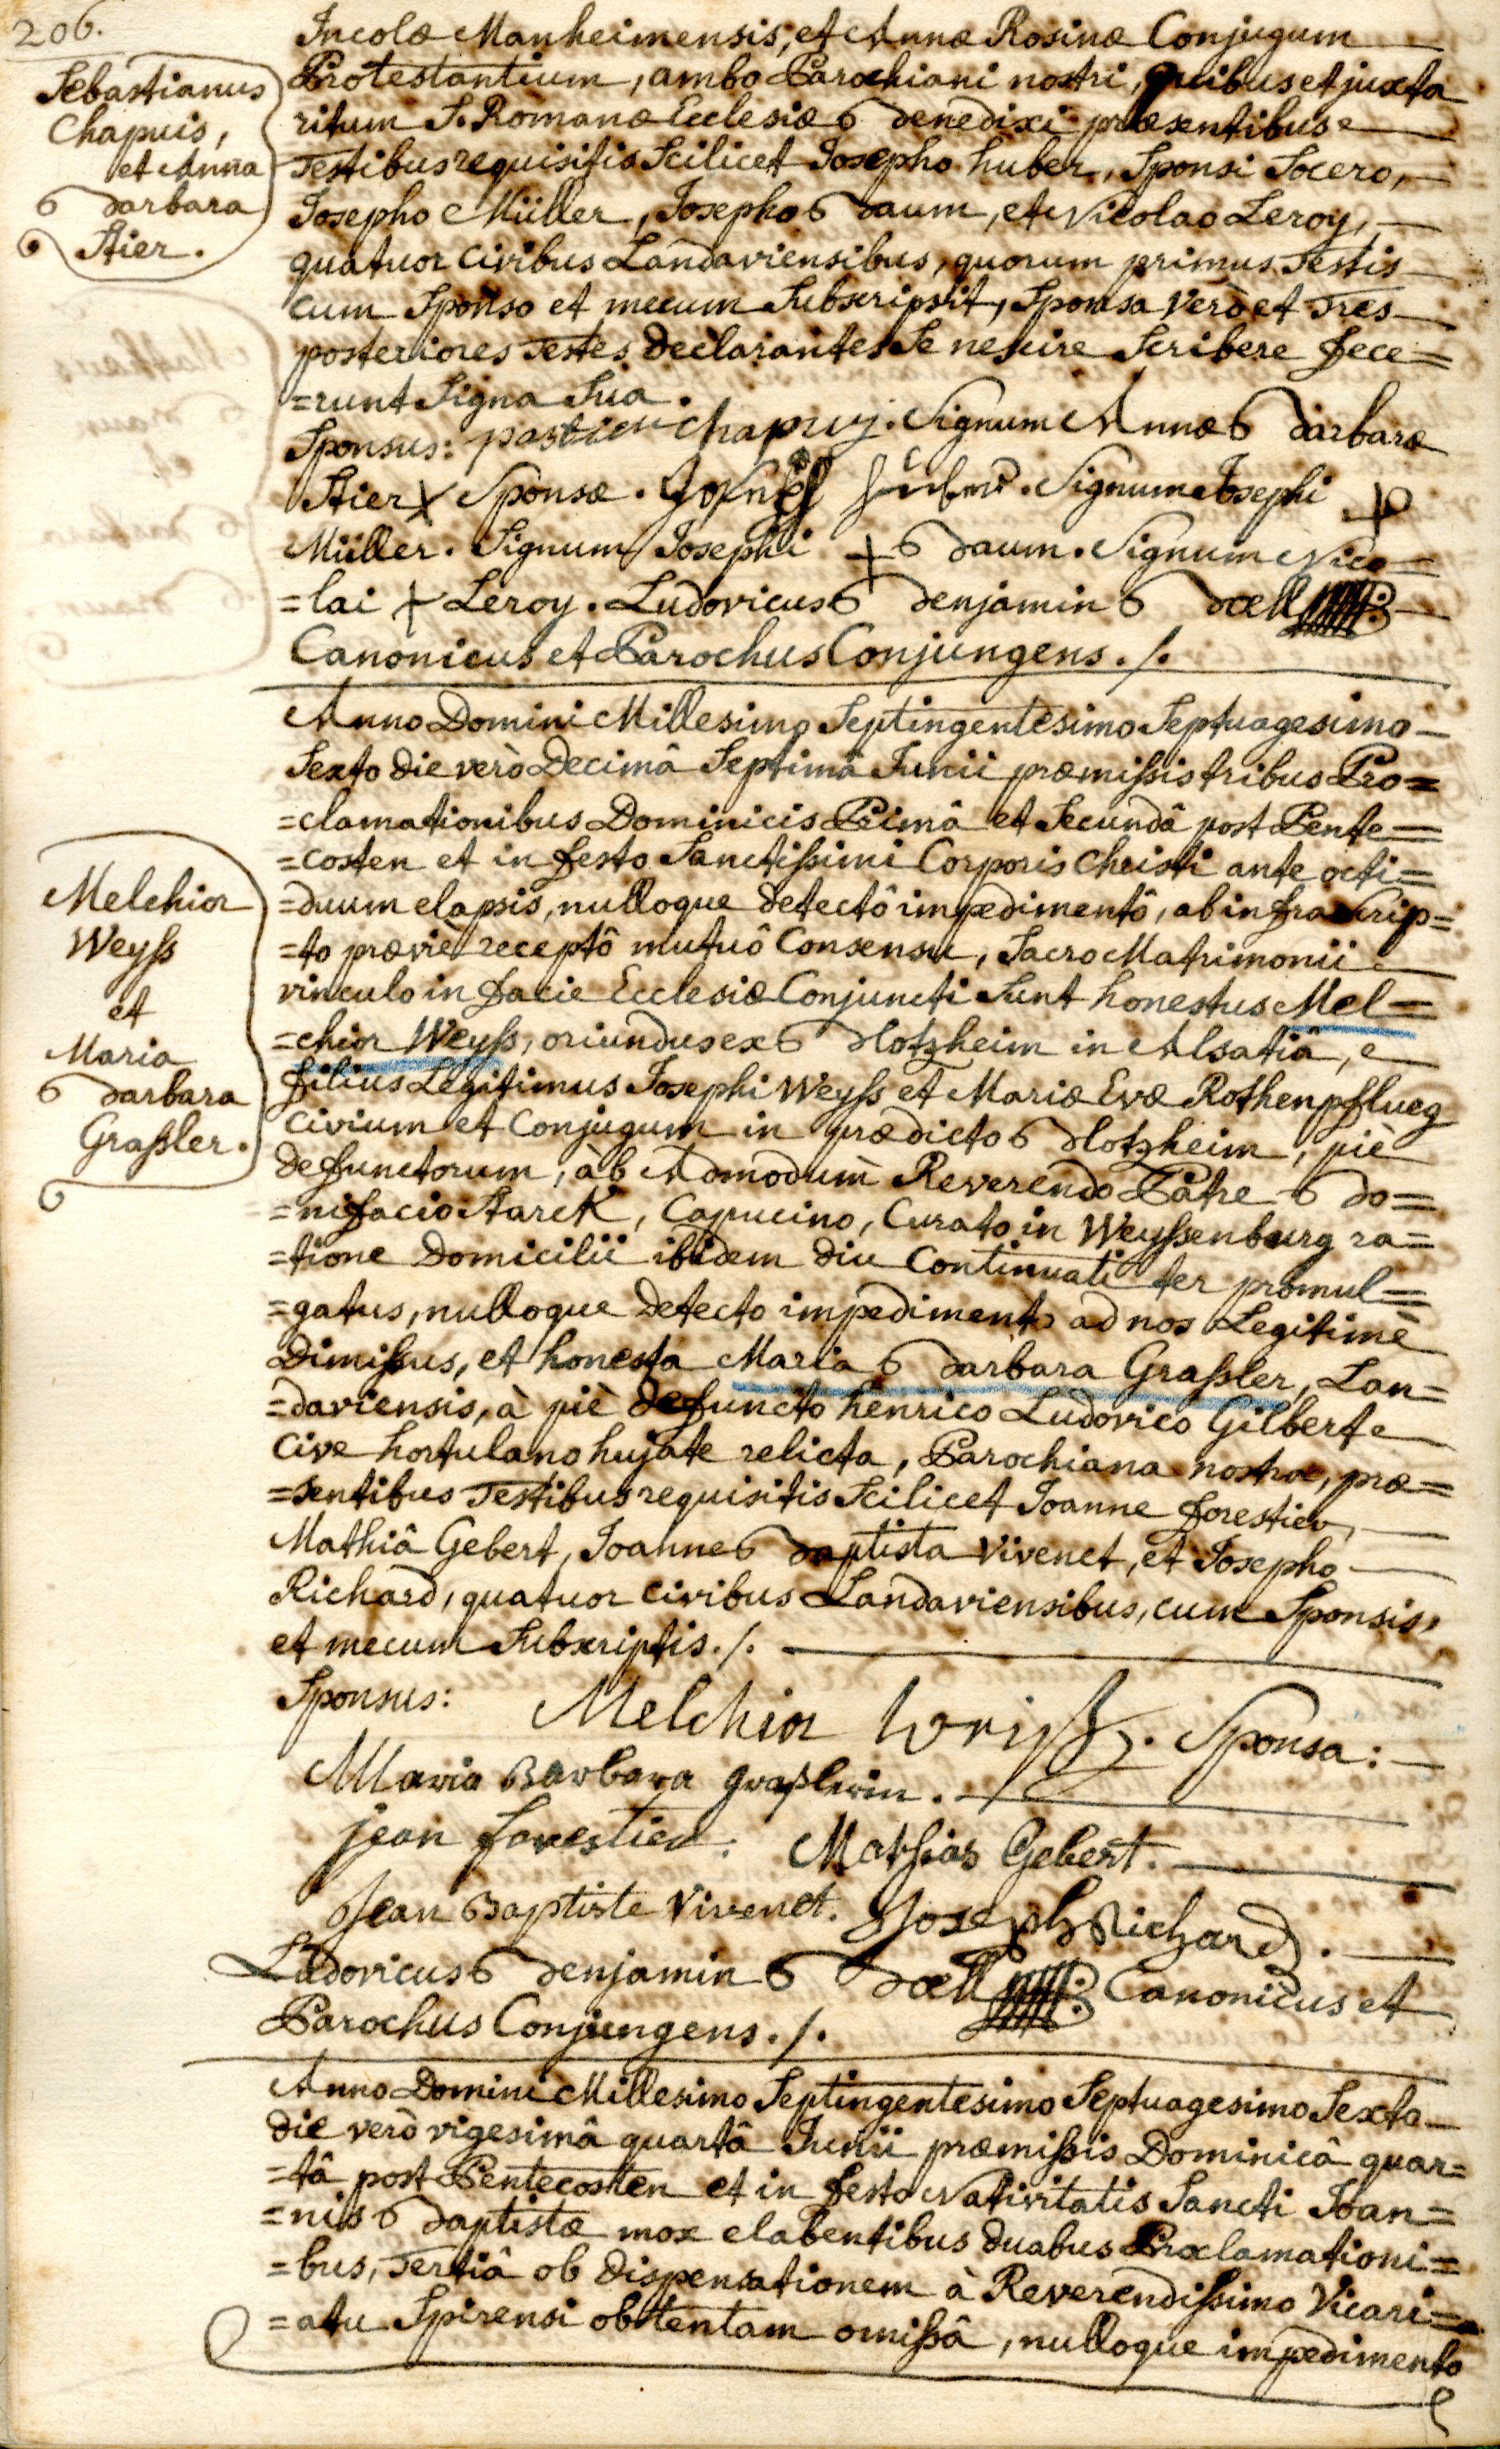 206.
Sebastianus
Chapuis,
et Anna
Barbara
Stier.
Incolæ Manheimensis, et Annæ Rosinæ Conjugum
Protestantium, ambo Parochiani nostri, quibus et juxta
ritum S. Romanæ Ecclesiæ Benedixi præsentibus
Testibus requisitis Scilicet Josepho huber, Sponsi Socero,
Josepho Müller, Josepho Baum, et Nicolao Leroy,
quatuor Civibus Landaviensibus, quorum primus Testis
cum Sponso et mecum Subscripsit, Sponsa verò et Tres
posteriores Testes declarantes Se nescire Scribere fece=
=runt Signa Sua.
Sponsus: pastien chapuy. Signum Annæ Barbaræ
Stier X Sponsæ. Signum Josephi
Müller. Signum Josephi + Baum. Signum Nico=
=lai + Leroy. Ludovicus Benjamin Boell
Canonicus et Parochus Conjungens./.
Melchior
Weyß
et
Maria
Barbara
Graßler.
Anno Domini Millesimo Septingentesimo Septuagesimo
Sexto die verò Decimâ Septimâ Junii præmißis tribus Pro=
=clamationibus Dominicis Primâ et Secundâ post Pente=
=costen et in festo Sanctißimi Corporis Christi ante octi=
=duum elapsis, nulloque detectô impedimentô, ab infrascrip=
=to præviè receptô mutuô Consensu, Sacro Matrimonii
vinculo in facie Ecclesiæ Conjuncti Sunt honestus Mel=
=chior Weyß, oriundus ex Blotzheim in Alsatiâ,
filius Legitimus Josephi Weyß et Mariæ Evæ Rothenpflueg
Civium et Conjugum in prædicto Blotzheim, piè
defunctorum, àb Admodùm Reverendo Patre Bo=
=nifacio Starck, Capucino, Curato in Weyßenburg ra=
=tione Domicilii ibidem diu Continuati ter promul=
=gatus, nulloque detecto impedimento ad nos Legitimè
Dimißus, et honesta Maria Barbara Graßler, Lan=
=daviensis, à piè defuncto henrico Ludovico Gilbert
Cive hortulano hujate relicta, Parochiana nostra, præ=
=sentibus Testibus requisitis Scilicet Joanne forestier,
Mathiâ Gebert, Joanne Baptista Vivenet, et Josepho
Richard, quatuor Civibus Landaviensibus, cum Sponsis,
et mecum Subscriptis./.
Sponsus: Melchior Weiß. Sponsa:
Maria Barbara graßlerin.
jean forestier. Mathias Gebert.
Jean Baptiste Vivenet. Joseph Richard.
Ludovicus Benjamin Boell Canonicus et
Parochus Conjungens./.
Anno Domini Millesimo Septingentesimo Septuagesimo Sexto
die verò vigesimâ quartâ Junii præmißis Dominicâ quar=
=tâ post Pentecosten et in festo Nativitatis Sancti Joan=
=nis Baptistæ mox elabentibus duabus Proclamationi=
=bus, Tertiâ ob Dispensationem à Reverendißimo Vicari=
=atu Spirensi obtentam omißâ, nulloque impedimento